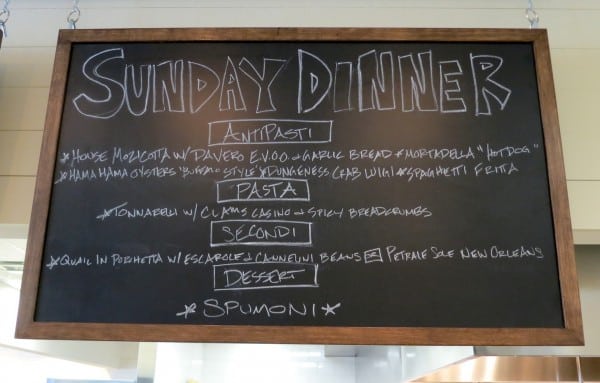 SUNDAY DINNER
ANTIPASTI
*HOUSE MOZICOTTA W/ DAVERO E.V.O.O. & GARLIC BREAD *MORTADELLA "HOT DOG"
*HAMA HAMA OYSTERS "BUFFALO STYLE" *DUNGENESS CRAB LUIGI *SPAGHETTI FRITTA
PASTA
*TONNARELLI W/ CLAMS CASINO & SPICY BREADCRUMBS
SECONDI
*QUAIL IN PORCHETTA W/ ESCAROLE & CANNELINI BEANS OR PETRALE SOLE NEW ORLEANS
DESSERT
*SPUMONI*